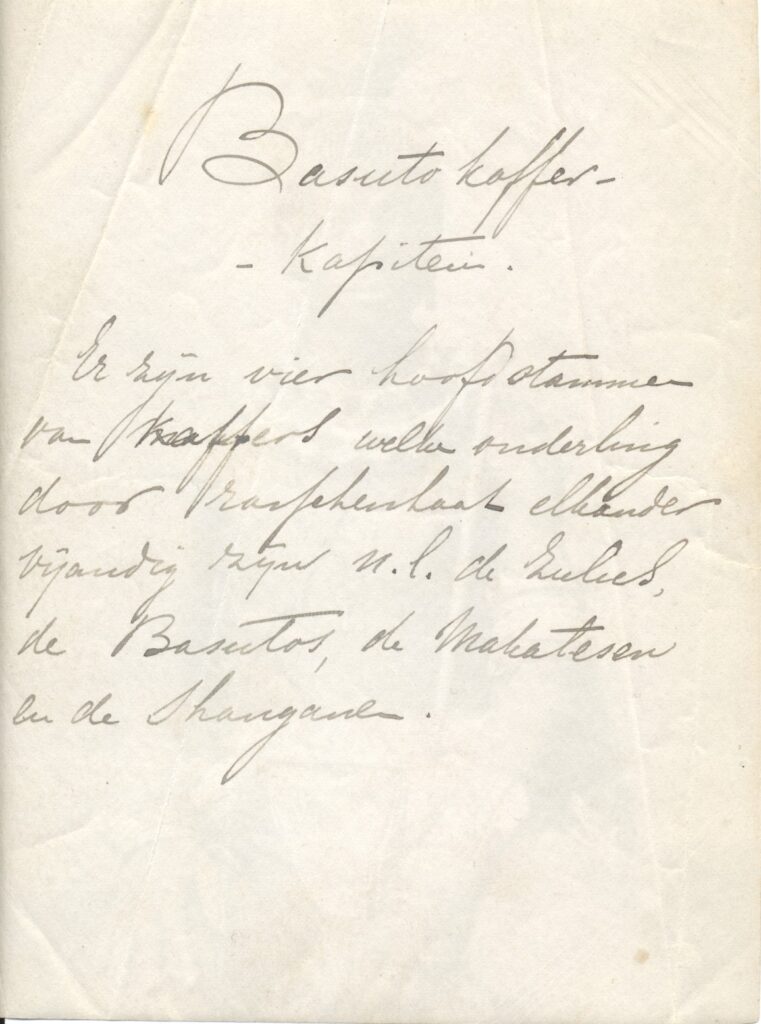 Basuto kaffer-
- kapitein.
Er zijn vier hoofdstammen
van Kaffers welke onderling
door rassenhaat elkander
vijandig zijn n.l. de Zulus,
de Basutos, de Makatesen
en de Shanganen.